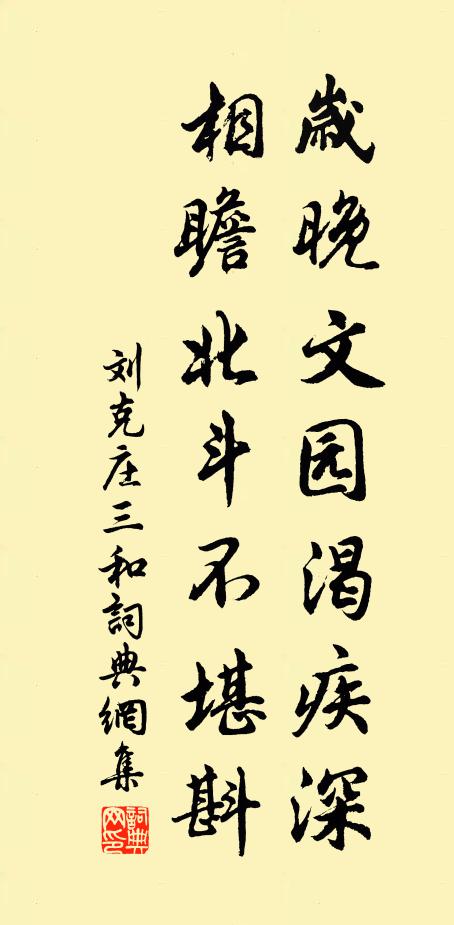 歲晚文园渴疾深
相瞻北斗不堪斟
刘克庄三和詞典網集
詞典网印